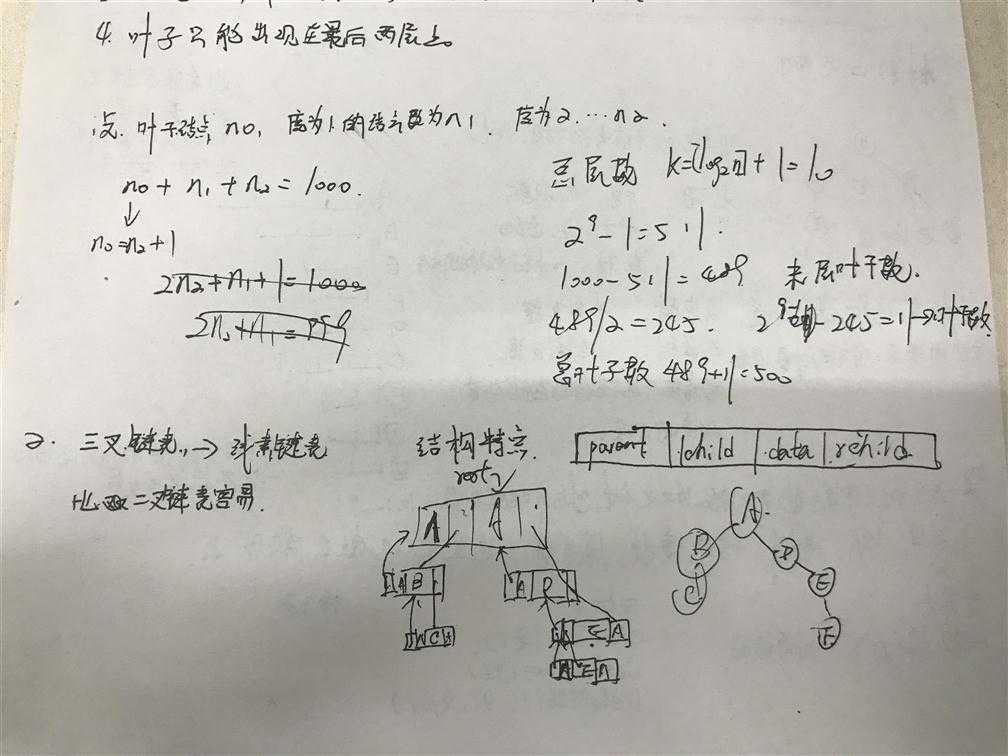 4. 叶子只能出现在最后两层上。
设. 叶子结点 n0, 度为1的结点数为n1. 度为2.…n2.
n0 + n1 + n2 = 1000.
n0=n2+1
2n2+n1+1=1000
2n2+n1=999
总层数 k=[log2n]+1=10
2^9-1=511.
1000-511=489 末层叶子数.
489/2=245. 2^9-1-245=11→叶子数
总叶子数 489+11=500
2. 三叉链表.→线索链表 结构特点.
比二叉链表容易.
parent lchild data rchild
root
A A
A B
C
A D
E A
A E A
A
B D
C E
F